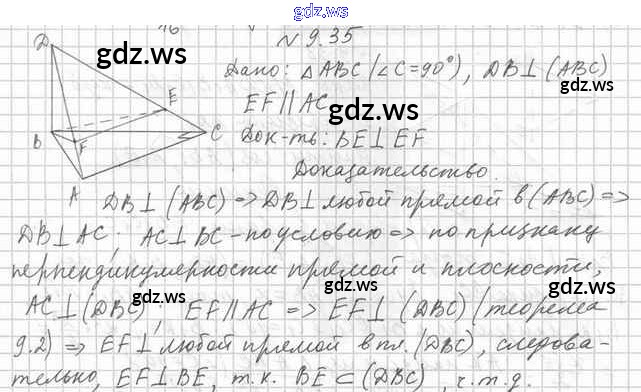 gdz.ws
16
N 9.35
Дано: △ABC (∠C=90°), DB⊥(ABC)
EF∥AC
Док-ть: BE⊥EF
Доказательство.
D
E
B
F
C
A
DB⊥(ABC) => DB⊥ любой прямой в (ABC) =>
DB⊥AC; AC⊥BC - по условию => по признаку
перпендикулярности прямой и плоскости,
AC⊥(DBC); EF∥AC => EF⊥(DBC) (теорема
9.2) => EF⊥ любой прямой в пл. (DBC), следова-
тельно, EF⊥BE, т.к. BE⊂(DBC), ч.т.д.
gdz.ws
gdz.ws
gdz.ws
gdz.ws
gdz.ws
gdz.ws